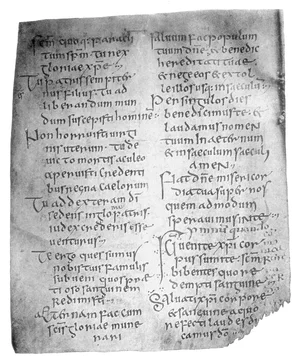 Scm quoq; paracli
tum spm Tu rex
gloriae xpe
Tu patris sempiter
nus filius Tu ad
liberandum mun
dum suscepisti homine
Non horruisti virgi
nis uterum Tu de
victo mortis aculeo
aperuisti credenti
bus regna caelorum
Tu ad dexteram di
sedens in gloria patris
iudex crederis esse
venturus
Te ergo quesumus
nobis tuis famulis
subveni quos pre
tioso sanguine
redimisti
Aeternam fac cum
scis gloriae mune
rari
Salvum fac populum
tuum dne et benedic
hereditati tuae
et rege eos et extol
le illos usq; in saeculum
Per singulos dies
benedicimus te et
laudamus nomen
tuum in aeternum
et in saeculum saeculi
amen
Fiat dne misericor
dia tua super nos
quem ad modum
speravimus in te
venite xpi cor
pus sumite scm
bibentes quo re
dempti sanguine
Salvati xpi corpore
et sanguine a quo
refecti laudes di
camus do